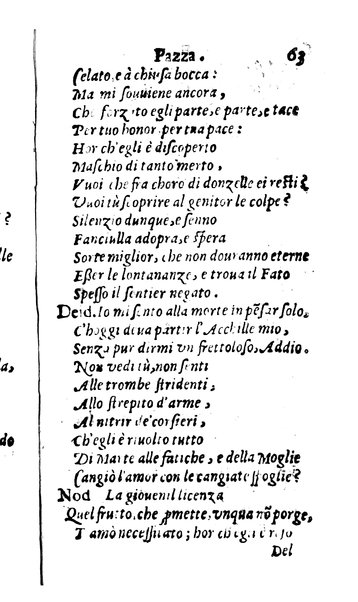 Pazza. 63
Celato, e à chiusa bocca:
Ma mi souuiene ancora,
Che forzato egli parte, e parte, e tace
Per tuo honor, per tua pace:
Hor ch'egli è discoperto
Maschio di tanto merto,
Vuoi che fra choro di donzelle ei resti?
Vuoi tù scoprire al genitor le colpe?
Silenzio dunque, e senno
Fanciulla adopra, e spera
Sorte miglior, che non douranno eterne
Esser le lontananze, e troua il Fato
Spesso il sentier negato.
Deid. Io mi sento alla morte in pẽsar solo,
C'hoggi deua partir l'Acchille mio,
Senza pur dirmi vn frettoloso, Addio.
Non vedi tù, non senti
Alle trombe stridenti,
Allo strepito d'arme,
Al nitrir de' corsieri,
Ch'egli è riuolto tutto
Di Marte alle fatiche, e della Moglie
Cangiò l'amor con le cangiate spoglie?
Nod La giouenil licenza
Quel frutto, che pmette, vnqua nõ porge,
T'amò necessitato; hor ch'egli è
Del
?
lle
la,
do